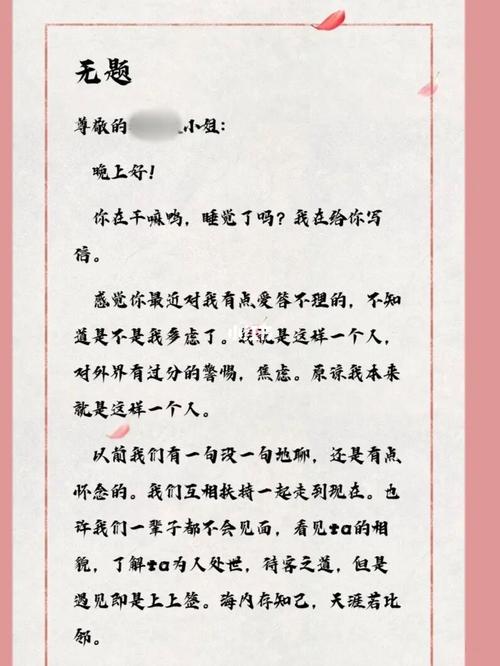 无题
尊敬的 小姐:
晚上好!
你在干嘛呜,睡觉了吗?我在给你写
信。
感觉你最近对我有点爱答不理的,不知
道是不是我多虑了。我就是这样一个人,
对外界有过分的警惕,焦虑。原谅我本来
就是这样一个人。
以前我们有一句没一句地聊,还是有点
怀念的。我们互相扶持一起走到现在。也
许我们一辈子都不会见面,看见ta的相
貌,了解ta为人处世,待客之道,但是
遇见即是上上签。海内存知己,天涯若比
邻。